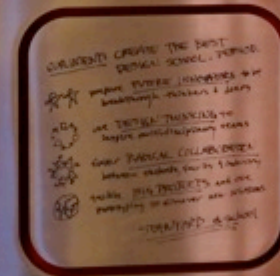 CREATE THE BEST
DESIGN SCHOOL. PERIOD.
prepare FUTURE INNOVATORS to be
breakthrough thinkers & doers
use DESIGN THINKING to
inspire multidisciplinary teams
foster RADICAL COLLABORATION
between students, faculty & industry
tackle BIG PROJECTS and use
prototyping to discover new solutions